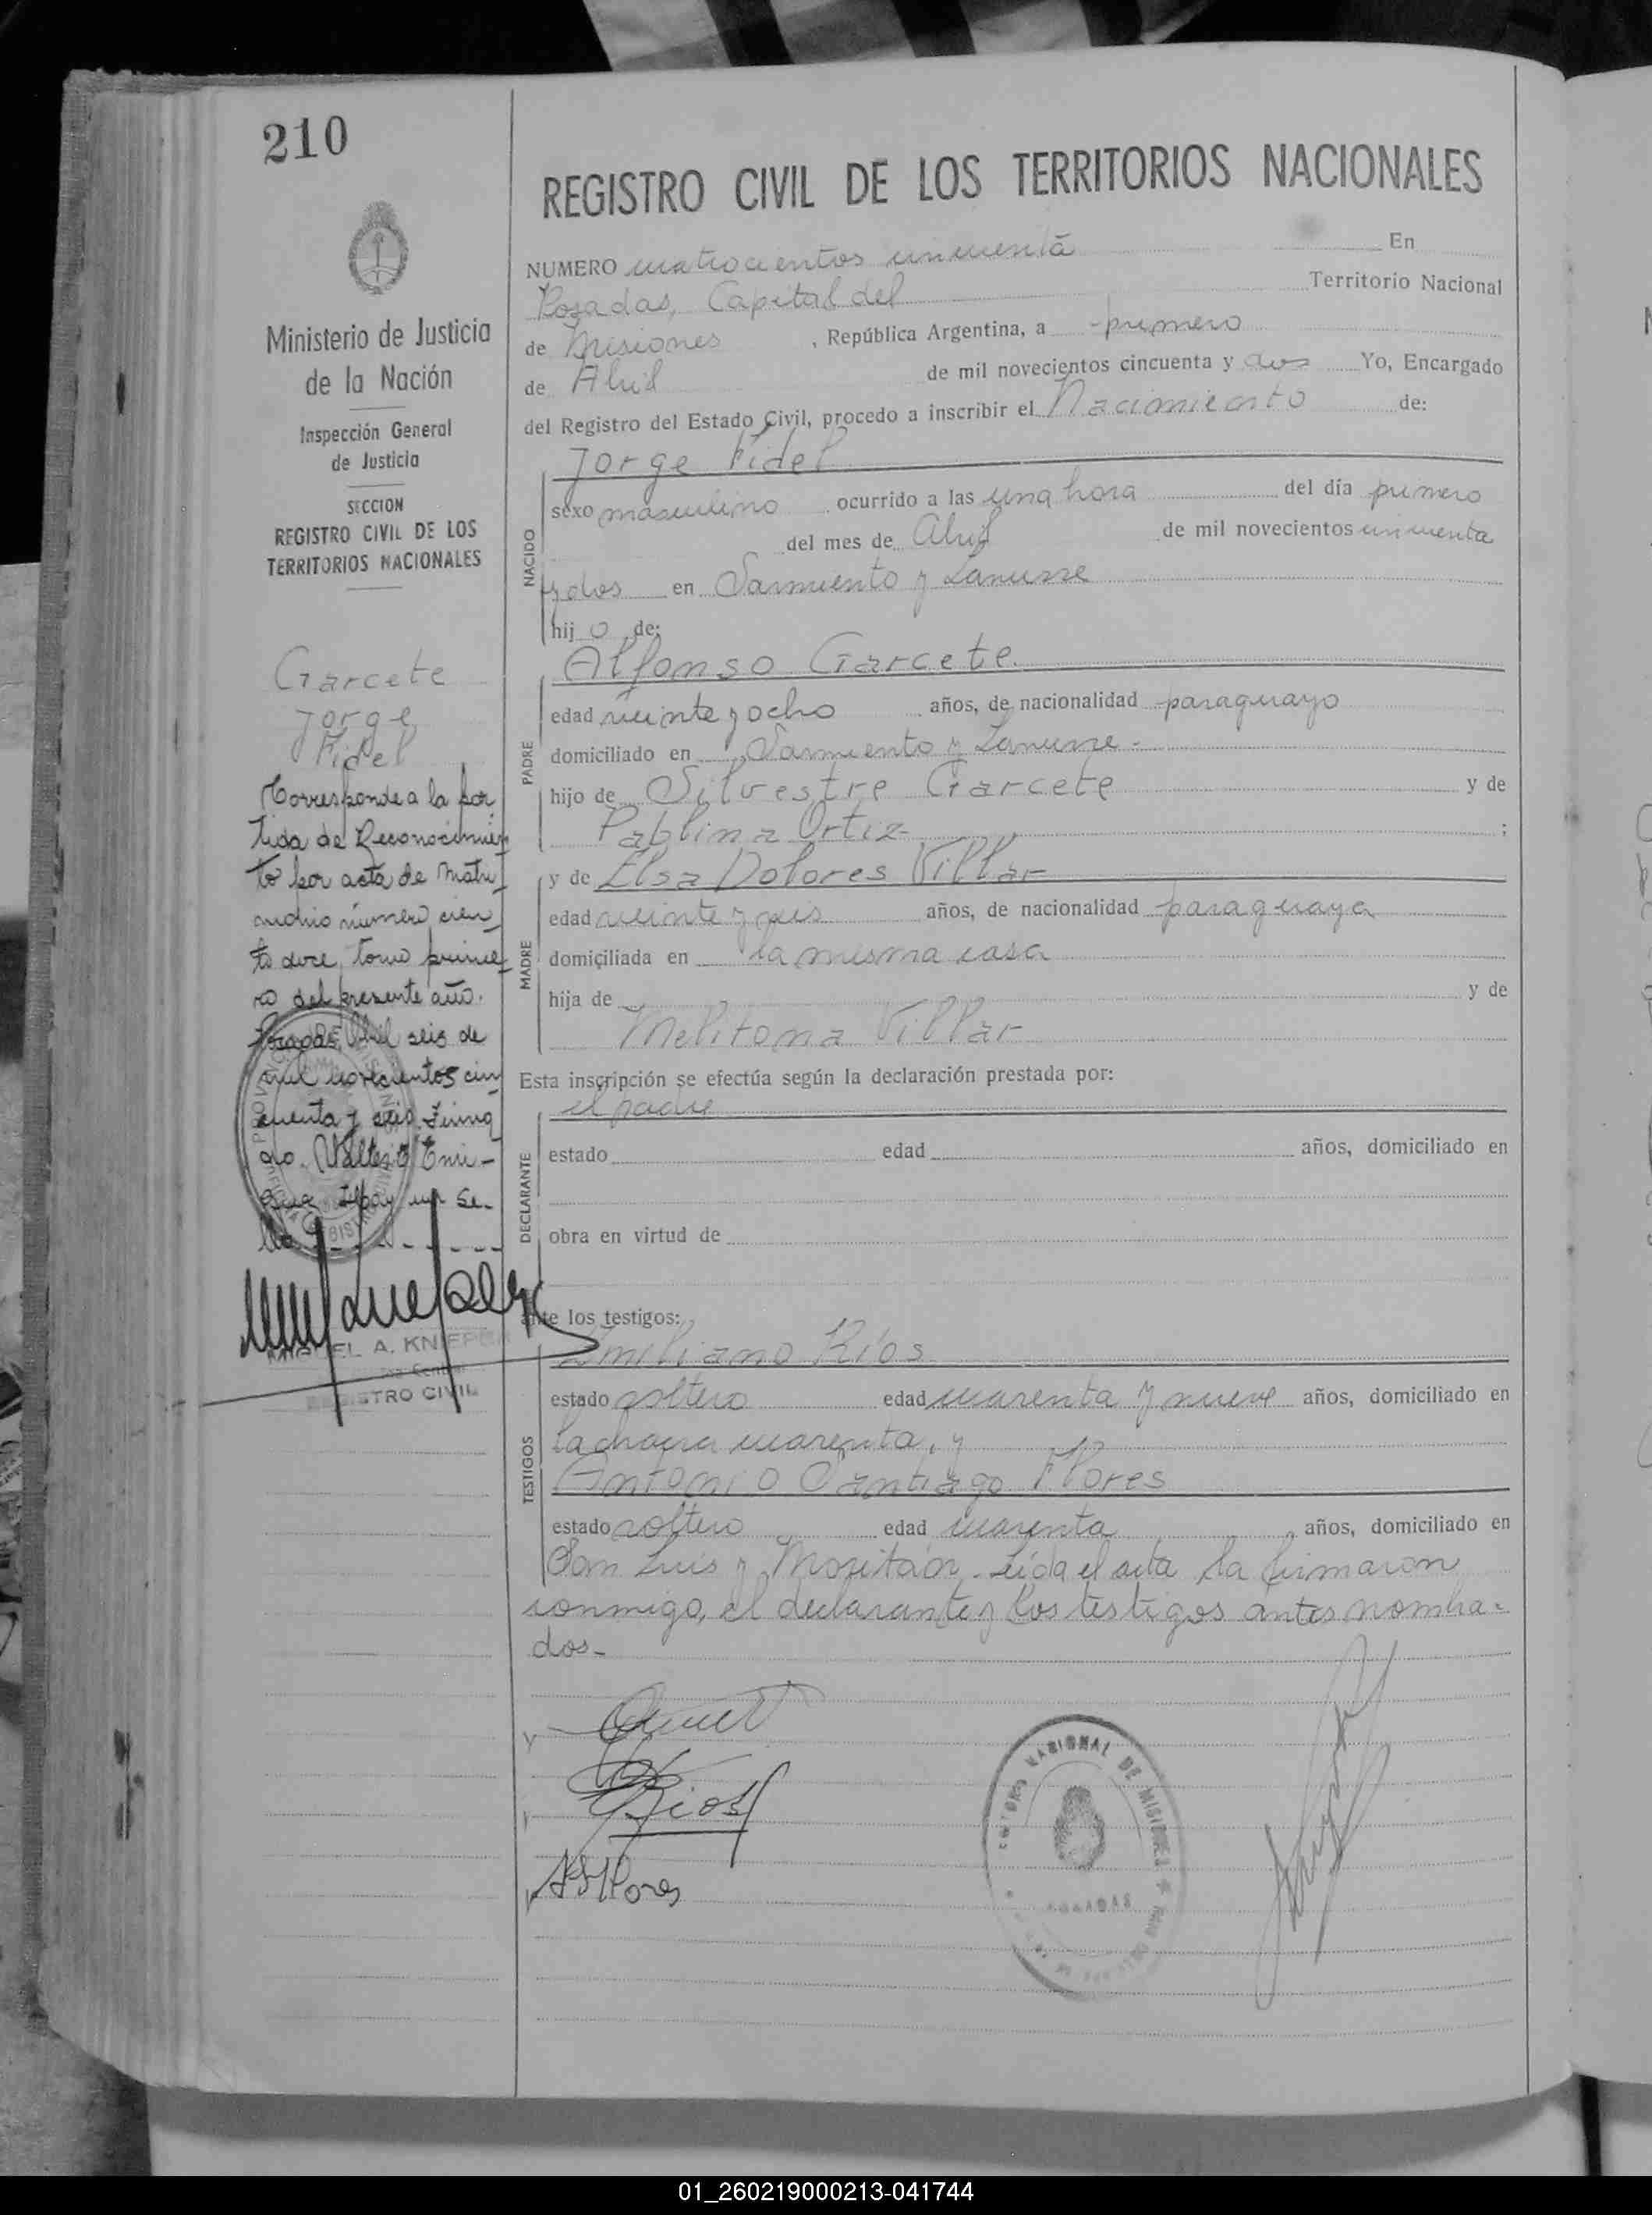 210
Ministerio de Justicia
de la Nación
Inspección General
de Justicia
SECCION
REGISTRO CIVIL DE LOS
TERRITORIOS NACIONALES
Garcete
Jorge
Fidel
Corresponde a la par
tida de Reconocimien
to por acta de Matri
monio número cien
to doce, tomo prime
ro del presente año.
Posadas, Abril seis de
mil novecientos cin
cuenta y seis. Firma
do. Hay un Se-
llo
MIGUEL A. KNIEPP
REGISTRO CIVIL
REGISTRO CIVIL DE LOS TERRITORIOS NACIONALES
NUMERO cuatrocientos cincuenta En
Posadas, Capital del Territorio Nacional
de Misiones , República Argentina, a primero
de Abril de mil novecientos cincuenta y dos Yo, Encargado
del Registro del Estado Civil, procedo a inscribir el Nacimiento de:
Jorge Fidel
NACIDO
sexo masculino ocurrido a las una hora del día primero
del mes de Abril de mil novecientos cincuenta
y dos en Sarmiento y Lanusse
hij o de:
Alfonso Garcete
PADRE
edad veinte y ocho años, de nacionalidad paraguayo
domiciliado en Sarmiento y Lanusse -
hijo de Silvestre Garcete y de
Pablina Ortiz ;
MADRE
y de Elsa Dolores Villar
edad veinte y seis años, de nacionalidad paraguaya
domiciliada en la misma casa
hija de y de
Melitona Villar
Esta inscripción se efectúa según la declaración prestada por:
el padre
DECLARANTE
estado edad años, domiciliado en
obra en virtud de
ante los testigos:
Emiliano Ríos
TESTIGOS
estado soltero edad cuarenta y nueve años, domiciliado en
la chacra cuarenta, y
Antonio Santiago Flores
estado soltero edad cuarenta, años, domiciliado en
San Luis y Leída el acta la firmaron
conmigo, el declarante y los testigos antes nombra-
dos-
Rios
ASFlores
NACIONAL DE MISIONES
POSADAS
01_260219000213-041744